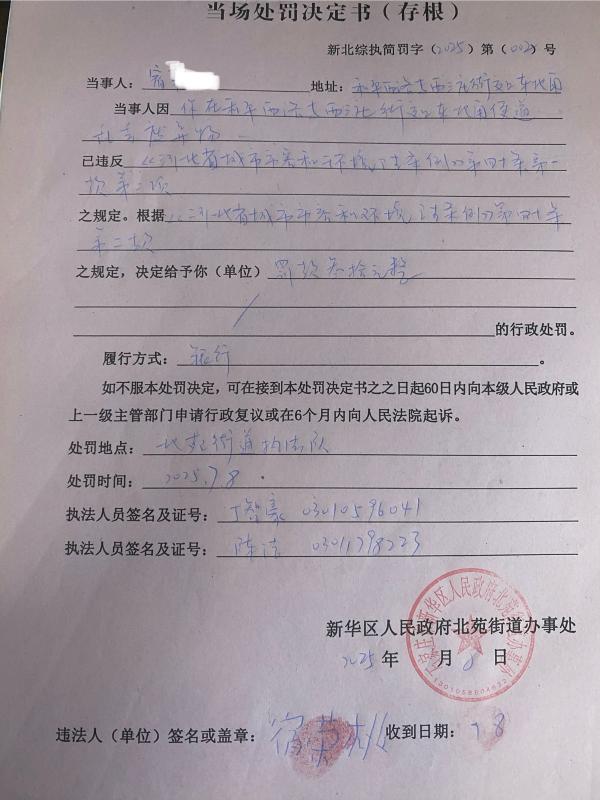 当场处罚决定书（存根）
新北综执简罚字（2025）第（002）号
当事人： 地址：和平西路与西三庄街交口东北角
当事人因 在和平西路与西三庄街交口东北角便道
乱弃物
已违反《河北省城市市容和环境卫生条例》第四十条第一
款第二项
之规定。根据《河北省城市市容和环境卫生条例》第四十条
第二款
之规定，决定给予你（单位）罚款叁拾元整
的行政处罚。
履行方式：银行。
如不服本处罚决定，可在接到本处罚决定书之之日起60日内向本级人民政府或
上一级主管部门申请行政复议或在6个月内向人民法院起诉。
处罚地点：北苑街道执法队
处罚时间：2025.7.8.
执法人员签名及证号：丁智豪 03010596041
执法人员签名及证号：陈洁 03011798223
新华区人民政府北苑街道办事处
2025年 月8日
违法人（单位）签名或盖章： 收到日期：7 8